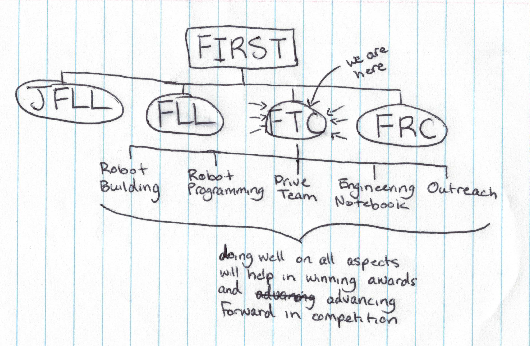 FIRST
we are
here
JFLL
FLL
FTC
FRC
Robot
Building
Robot
Programming
Drive
Team
Engineering
Notebook
Outreach
doing well on all aspects
will help in winning awards
and advancing
forward in competition